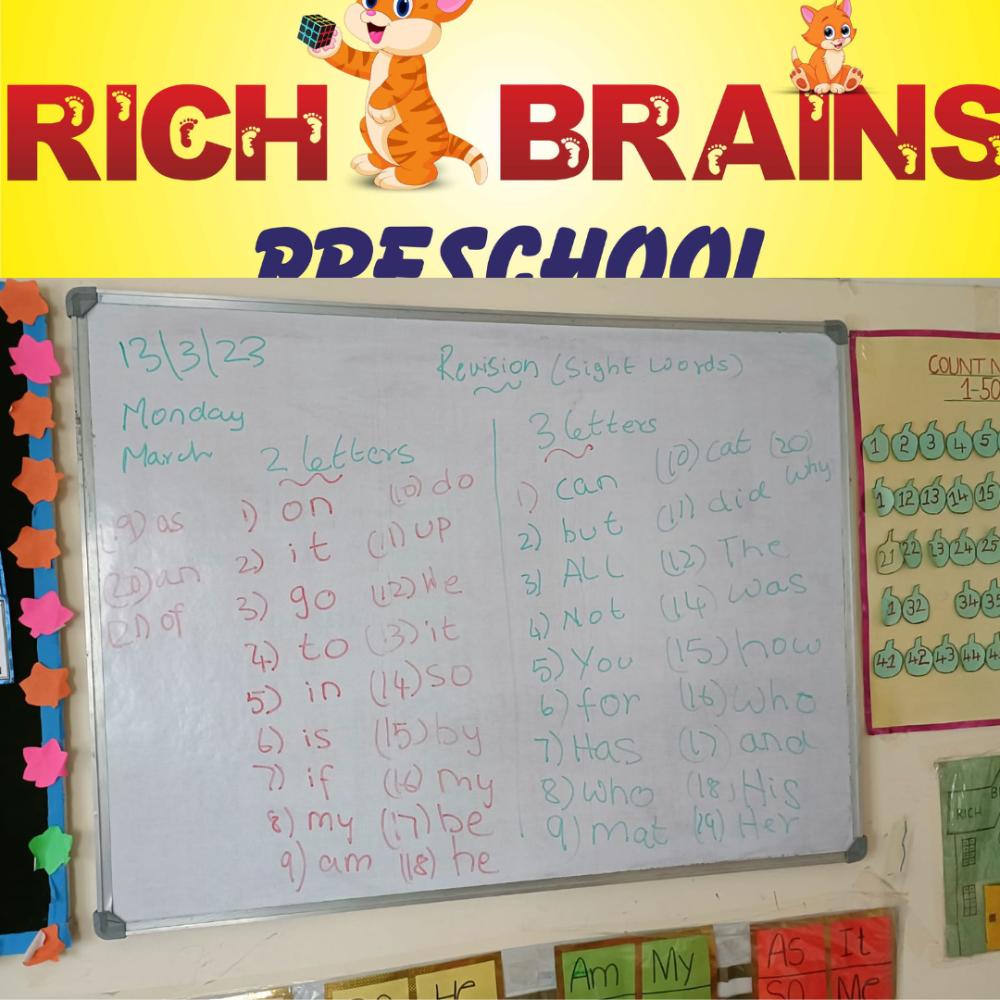 RICH BRAINS
PRESCHOOL
13/3/23
Revision (Sight words)
Monday
March
2 letters
1) on
2) it
3) go
4) to
5) in
6) is
7) if
8) my
9) am
(10) do
(11) up
(12) We
(13) it
(14) so
(15) by
(16) my
(17) be
(18) he
(19) as
(20) an
(21) of
3 letters
1) can
2) but
3) ALL
4) Not
5) You
6) for
7) Has
8) who
9) mat
(10) cat
(11) did
(12) The
(14) was
(15) how
(16) Who
(17) and
(18) His
(19) Her
(20) why
COUNT
1-50
1 2 3 4 5
1 12 13 14 15
21 22 23 24 25
1 32 34 35
41 42 43 44
RICH
He
Am My
As It
So Me